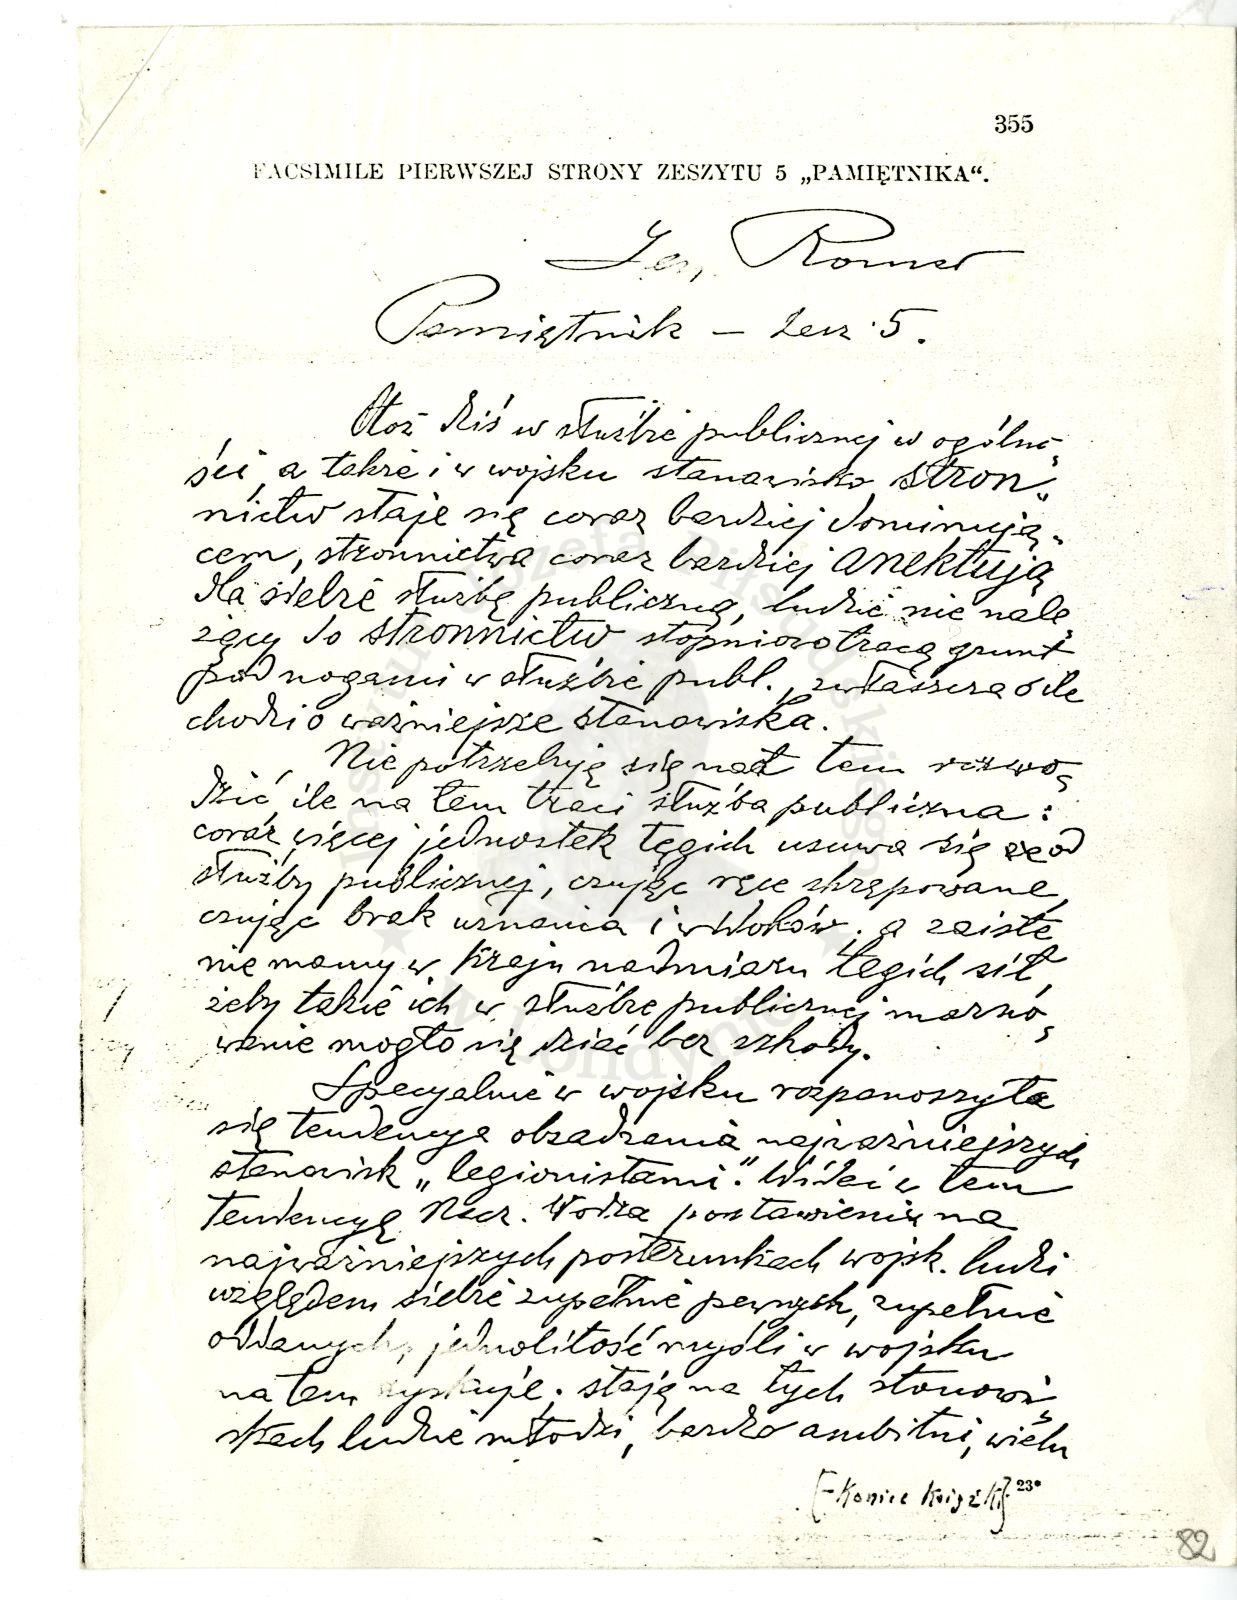 355
FACSIMILE PIERWSZEJ STRONY ZESZYTU 5 „PAMIĘTNIKA“.
Jen. Romer
Pamiętnik — Zesz. 5.
Otoż dziś w służbie publicznej w ogólno-
ści, a także i w wojsku stanowisko stron-
nictw staje się coraz bardziej dominują-
cem, stronnictwa coraz bardziej anektują
dla siebie służbę publiczną, ludzie nie nale-
żący do stronnictw stopniowo tracą grunt
pod nogami w służbie publ., zwłaszcza o ile
chodzi o ważniejsze stanowiska.
Nie potrzebuję się nad tem rozwo-
dzić, ile na tem traci służba publiczna:
coraz więcej jednostek tęgich usuwa się od
służby publicznej, czując ręce skrępowane,
czując brak uznania i widoków; a zaiste
nie mamy w Kraju nadmiaru tęgich sił,
żeby takie ich w służbie publicznej marno-
wanie mogło się dziać bez szkody.
Specyalnie w wojsku rozpanoszyła
się tendencya obsadzania najważniejszych
stanowisk „legionistami“. Widzi w tem
tendencyę Nacz. Wodza postawienia na
najważniejszych posterunkach wojsk. ludzi
względem siebie zupełnie pewnych, zupełnie
oddanych, jednolitość myśli w wojsku
na tem zyskuje; stają na tych stanowi-
skach ludzie młodzi, bardzo ambitni, wielu
[-Koniec Książki] 23*
82
Instytut Józefa Piłsudskiego w Londynie